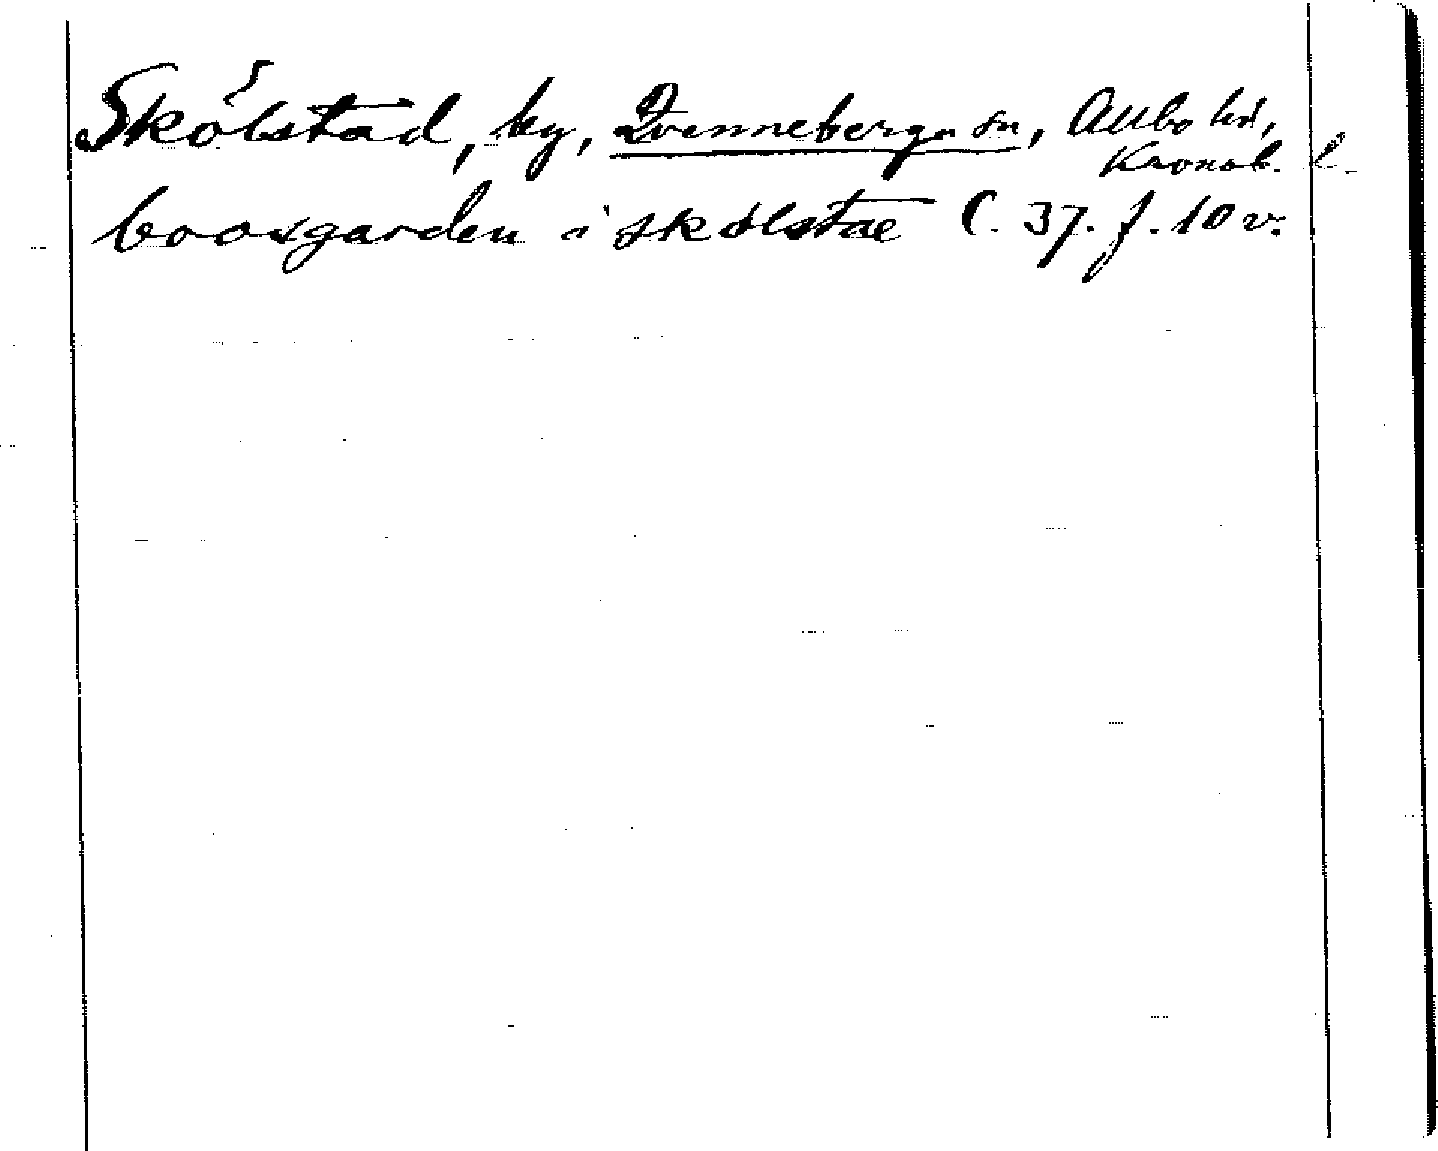 Skölstad, by, Qvenneberga sn, Allbo hd,
Kronob. l.
booxgarden i skölstae C. 37. f. 10 v.